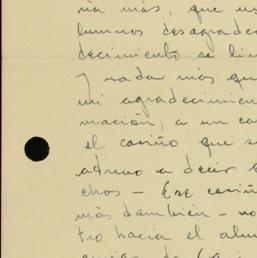 ña más, que un
lumnos desagradec
decimiento se lim
y nada más que
mi agradecimien
mación; a un ca
el cariño que se
atrevo a decir s
chos — Ese cariñ
más también — no
tro hacia el alu